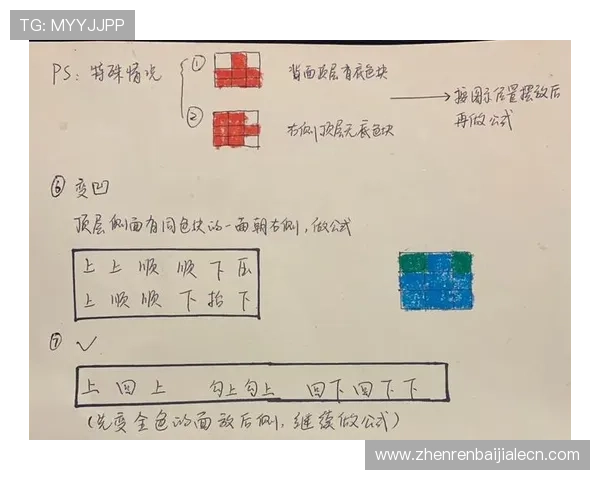 TG: MYYJJPP
PS: 特殊情况
① 背面顶层有底色块
② 右侧顶层无底色块
→ 按图示位置摆放后
再做公式
⑥ 变凹
顶层侧面有同色块的一面朝右侧,做公式
上 上 顺 顺 下 压
上 顺 顺 下 抬 下
⑦ ✓
上 回 上 勾上勾上 回下回下下
(先变全色的面放后侧,继续做公式)
www.zhenrenbaijialecn.com